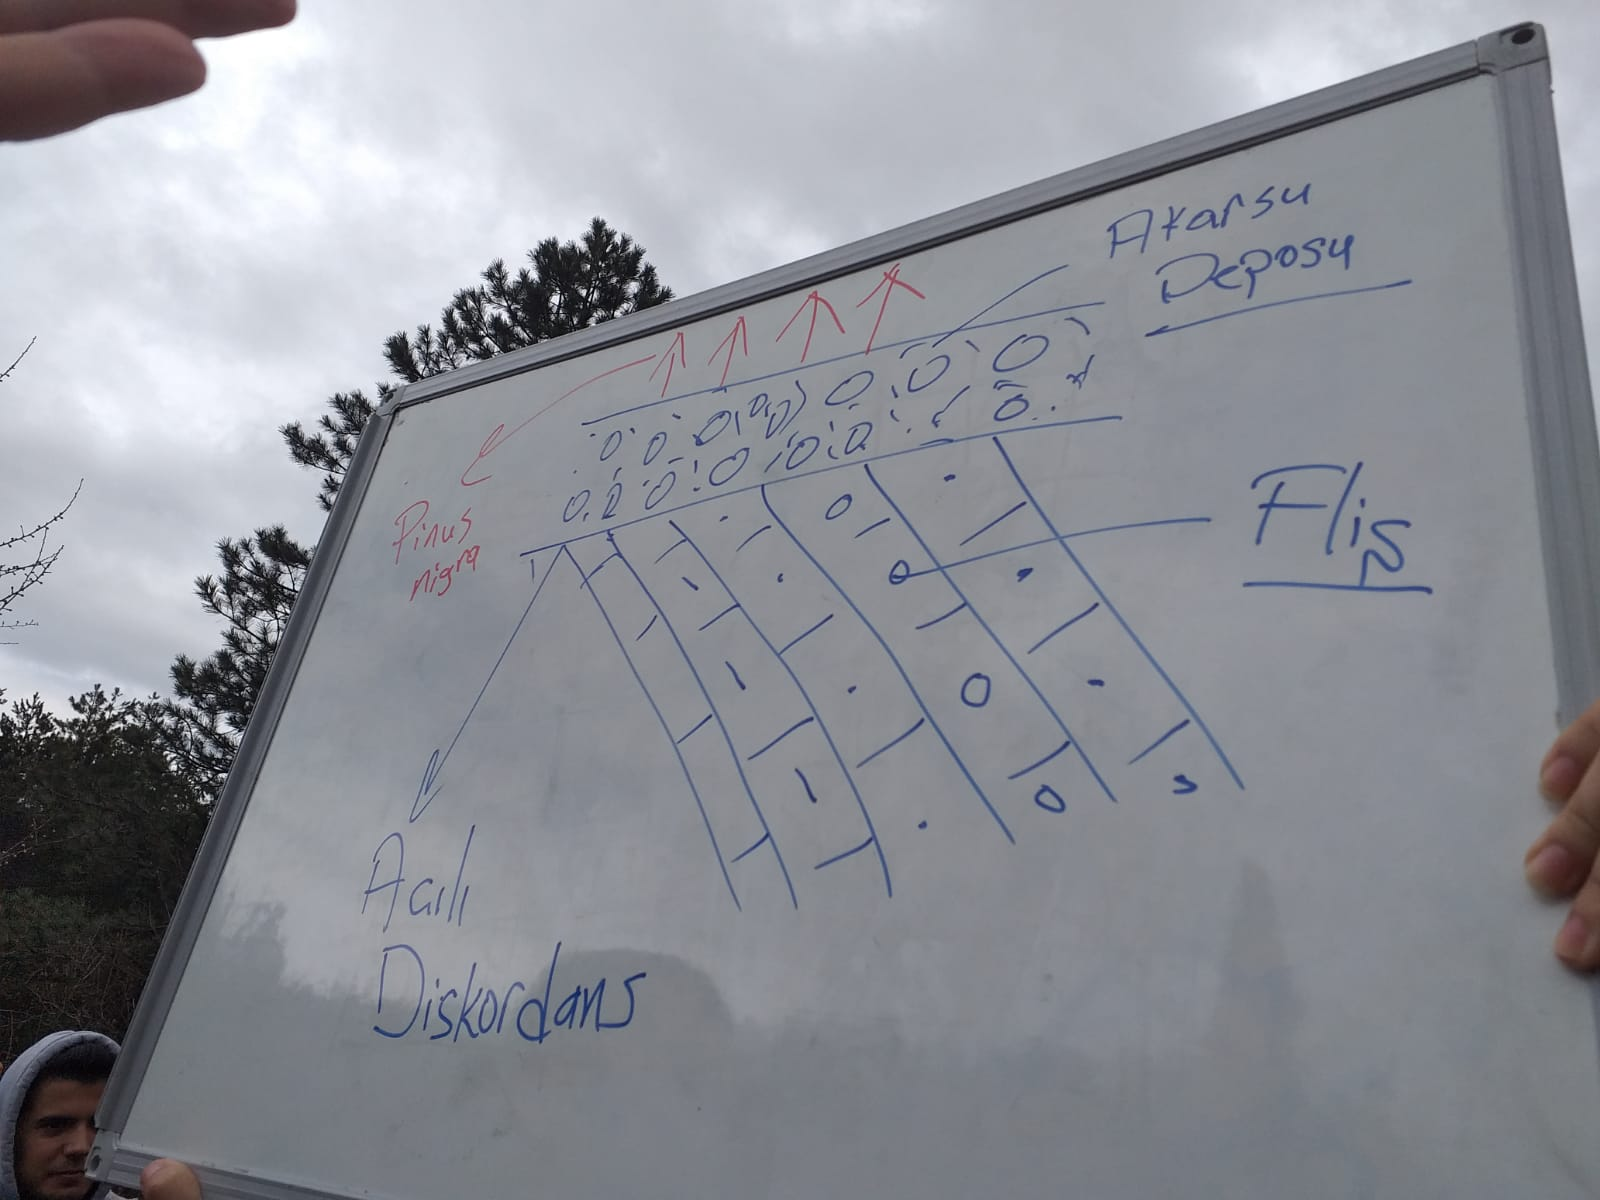 Akarsu
Deposu
Pinus
nigra
Fliş
Açılı
Diskordans